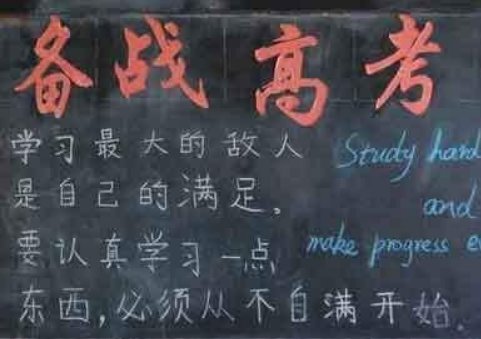 备战高考
学习最大的敌人
是自己的满足。
要认真学习一点
东西,必须从不自满开始.
Study hard
and
make progress